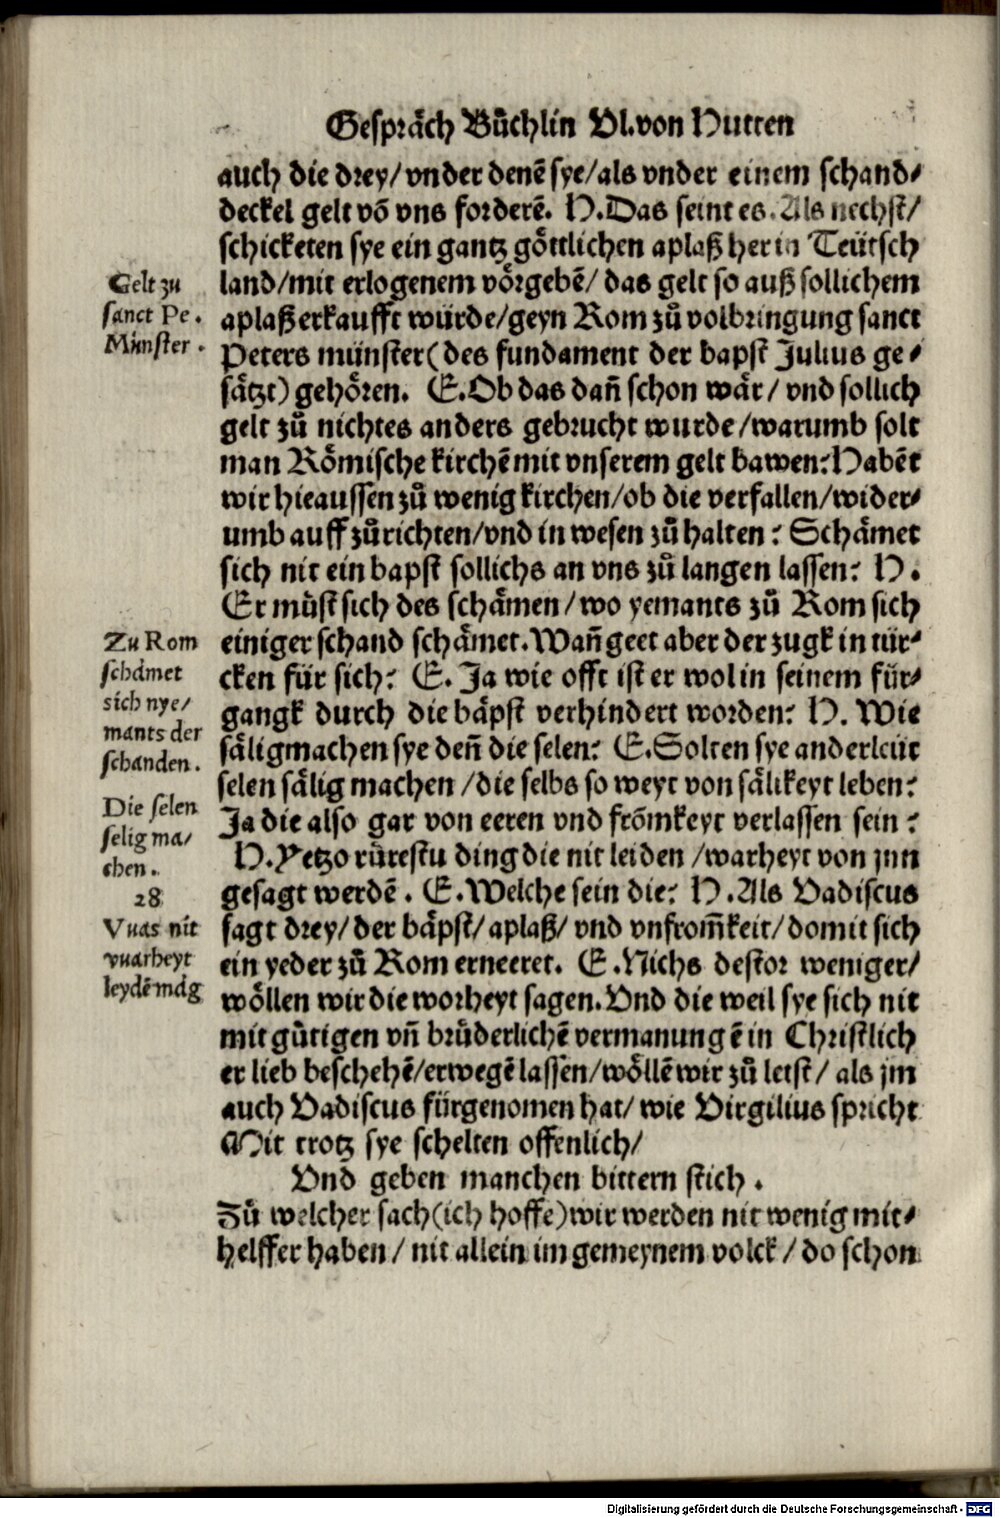 Gespräch Bůchlin Vl. von Hutten
auch die drey/ vnder denē sye/als vnder einem schand⸗
deckel gelt vō vns forderē. H. Das seint es. Als nechst/
schicketen sye ein gantz göttlichen aplaß her in Teütsch
land/mit erlogenem vörgebē/ das gelt so auß sollichem
aplaß erkaufft würde/geyn Rom zů volbringung sanct
Peters münster( des fundament der bapst Julius ge⸗
sätzt) gehören. E. Ob das dañ schon wär/ vnd sollich
gelt zů nichtes anders gebrucht wurde/warumb solt
man Römische kirchē mit vnserem gelt bawen? Habēt
wir hieaussen zů wenig kirchen/ob die verfallen/wider⸗
umb auff zůrichten/vnd in wesen zů halten? Schämet
sich nit ein bapst sollichs an vns zů langen lassen? H.
Er můst sich des schämen/wo yemants zů Rom sich
einiger schand schämet. Wañ geet aber der zugk in tür⸗
cken für sich? E. Ja wie offt ist er wol in seinem für⸗
gangk durch die bäpst verhindert worden? H. Wie
säligmachen sye deñ die selen? E. Solten sye anderleüt
selen sälig machen /die selbs so weyt von sälikeyt leben?
Ja die also gar von eeren vnd frōmkeyt verlassen sein?
H. Yetzo rürestu ding die nit leiden /warheyt von jnn
gesagt werdē. E. Welche sein die? H. Als Vadiscus
sagt drey/ der bäpst/ aplaß/ vnd vnfrom̃keit/ domit sich
ein yeder zů Rom erneeret. E. Nichs destor weniger/
wöllen wir die worheyt sagen. Vnd die weil sye sich nit
mit gütigen vñ brüderlichē vermanungē in Christlich
er lieb beschehē/erwegē lassen/wöllē wir zů letst/ als jm
auch Vadiscus fürgenomen hat/ wie Virgilius spricht
Mit trotz sye schelten offenlich/
Vnd geben manchen bittern stich.
Zů welcher sach(ich hoffe) wir werden nit wenig mit⸗
helffer haben/ nit allein im gemeynem volck/ do schon
Gelt zu
sanct Pe.
Münster.
Zu Rom
schämet
sich nye/
mants der
schanden.
Die selen
selig ma/
chen.
28
Vuas nit
vuarheyt
leydē mag
Digitalisierung gefördert durch die Deutsche Forschungsgemeinschaft - DFG